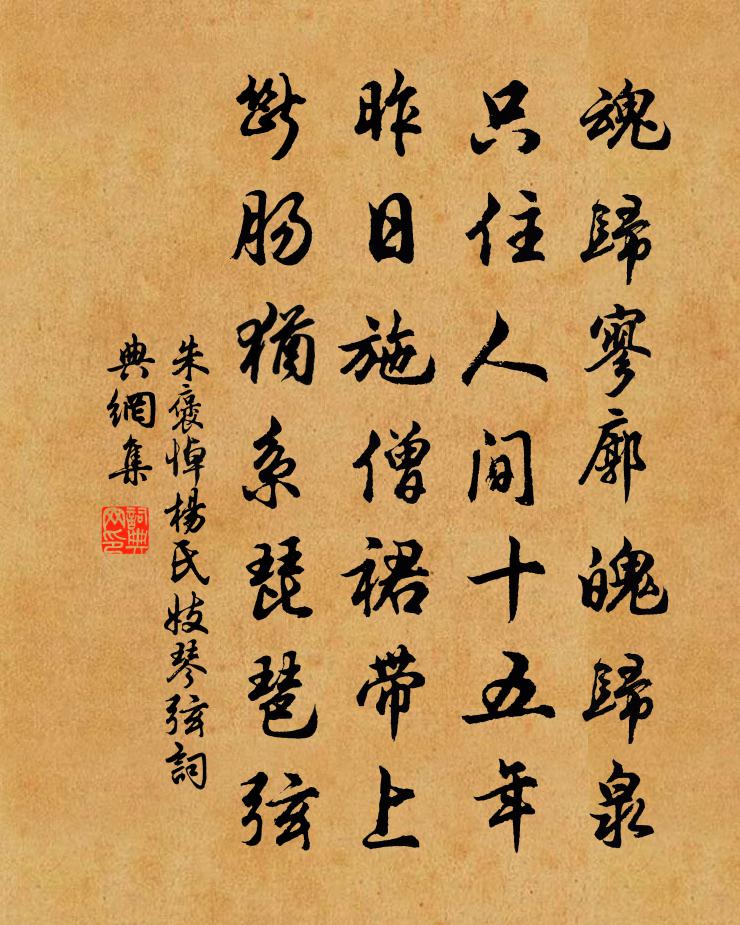 魂歸寥廓魄歸泉
只住人間十五年
昨日施僧裙带上
斷腸猶系琵琶弦
朱褒悼楊氏妓琴弦詞
典網集
詞典
网印